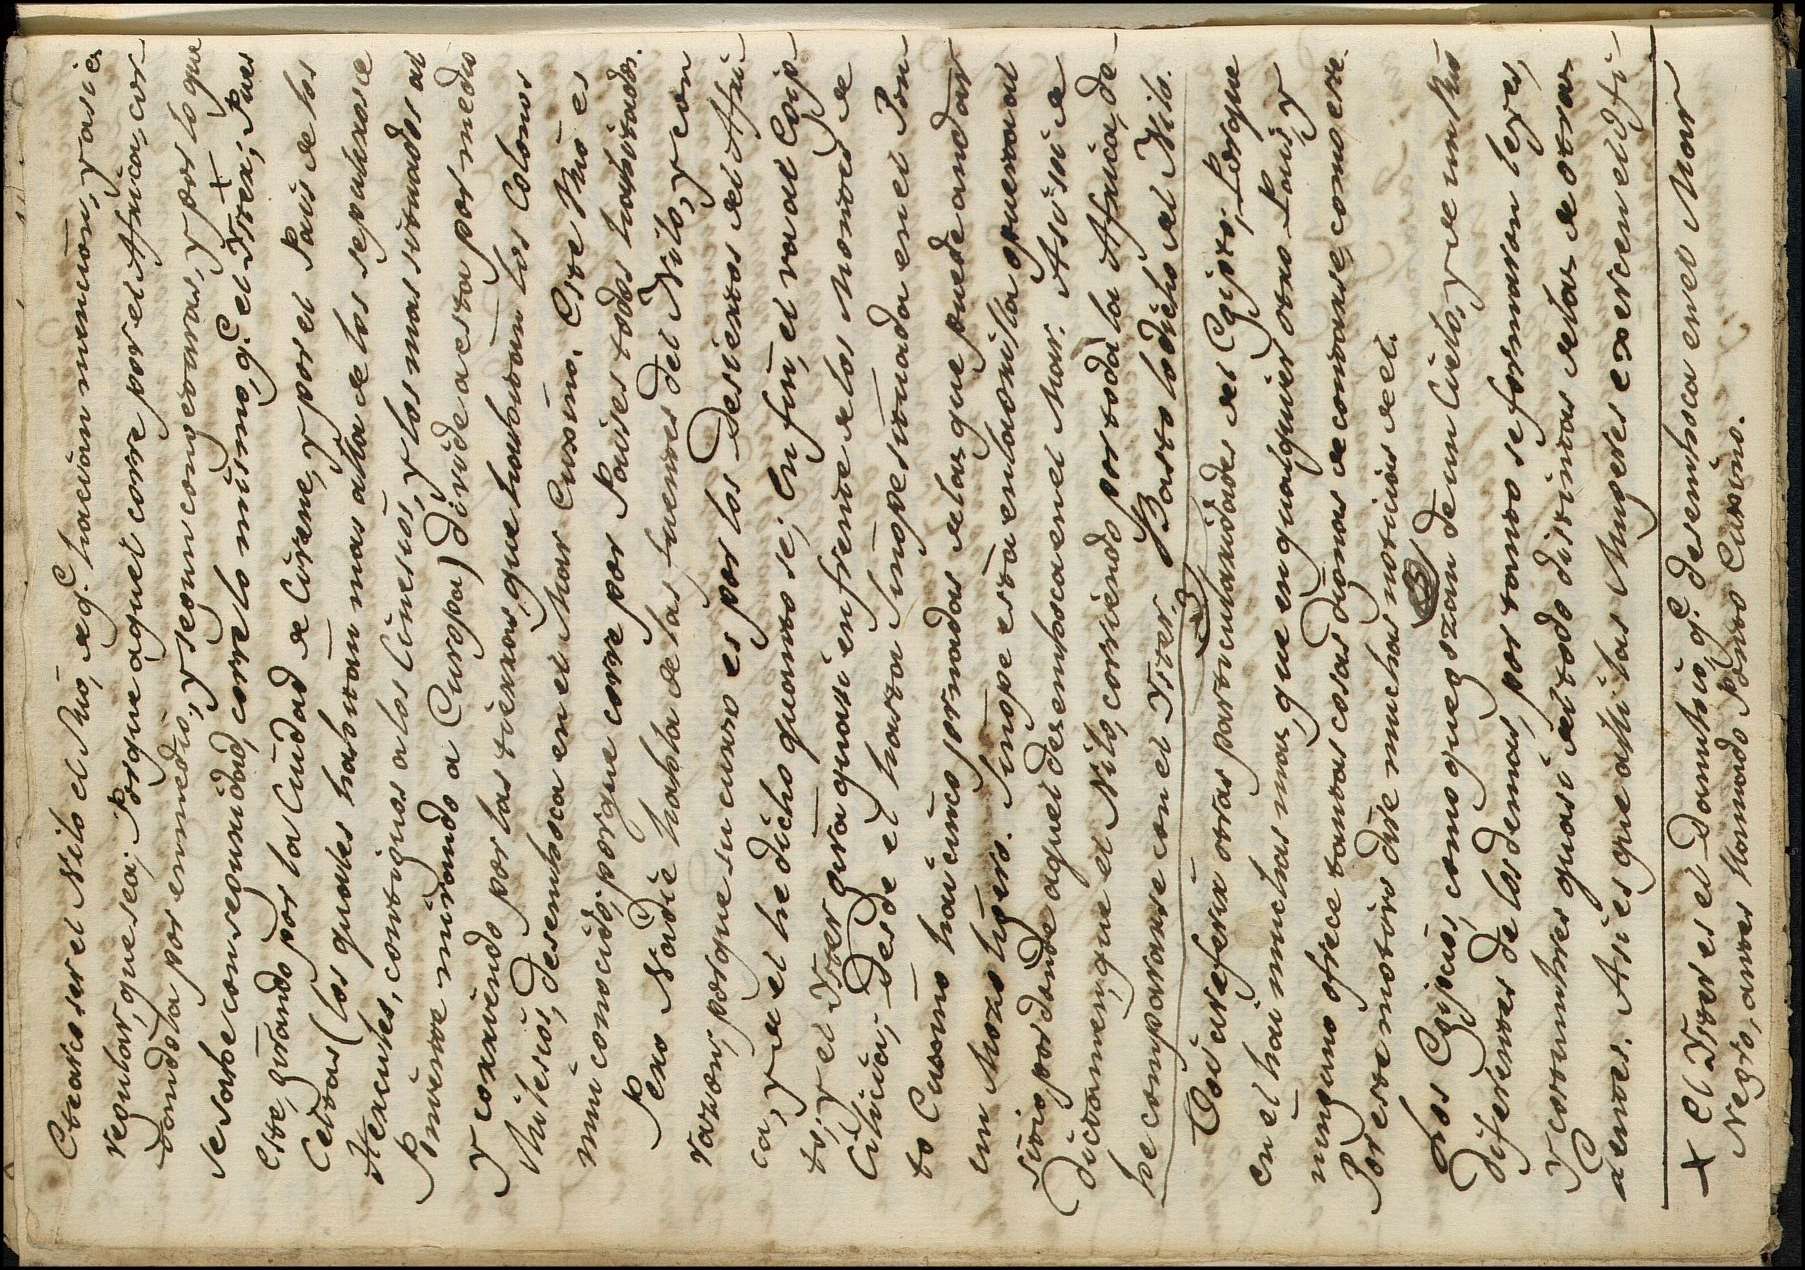 Etearco ser el Nilo el Rio, de q.e havian mencion, y asi es
regular, que sea; Porque aquel corre por el Africa, cor
tandola por enmedio, y segun congeturas, y por lo que
se sabe con seguridad, corre lo mismo, q.e el Yster; + Pues
este, girando por la Ciudad de Cirene, y por el Pais de los
Celtas (los quales habitan mas alla de las sepulturas de
Hercules, contiguos a los Cinesios, y los mas situados al
Poniente mirando a Europa) divide a esta por medio
y corriendo por las tierras, que habitan los Colonos
Milesios, desemboca en el Mar Euxino. Este Rio es
mui conocido; porque corre por Paises todos habitados.
Pero Nadie habla de las fuentes del Nilo, y con
razon; porque su curso es por los Desiertos del Afri-
ca, y de el he dicho quanto se; En fin, el va al Egip
to; y el Yster gira quasi enfrente de los Montes de
Cilicia; desde el hasta Sinope situada en el Pon
to Euxino hai cinco jornadas de las que puede andar
un Mozo ligero. Sinope esta en la orilla opuesta al
sitio por donde aquel desemboca en el Mar: Asi soi de
dictamen, que el Nilo, corriendo por toda la Africa, de
be compararse con el Yster. Basta lo dicho del Nilo.
Voi a referir otras particularidades del Egipto; Porque
en el hai muchas mas, que en qualquier otro Pais, y
ninguno ofrece tantas cosas dignas de contarse, como este.
Por este motivo dire muchas noticias de el.
Los Egipcios, como que gozan de un Cielo, y de un Rio
diferentes de los demas, por tanto se formaron leyes,
y costumbres quasi del todo distintas de las de otras
Gentes. Asi es que alli las Mugeres exercen el ofi-
+ El Yster es el Danubio, q.e desemboca en el Mar
Negro, antes llamado Ponto Euxino.